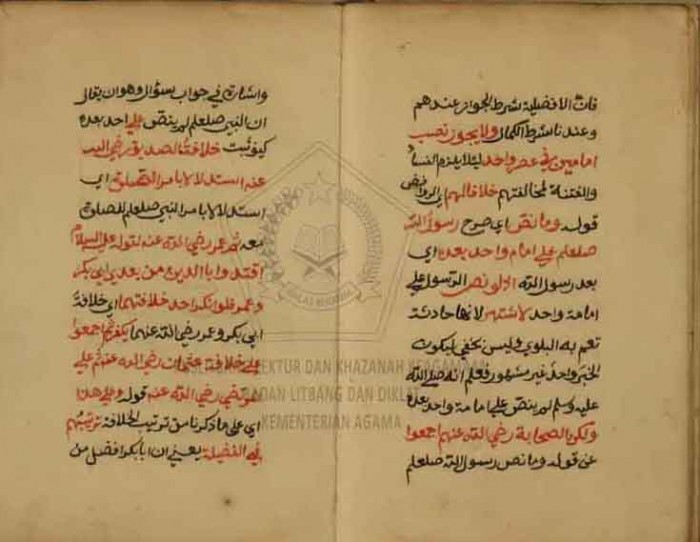 فان الافضلية شرط الجواز عندهم
وعندنا شرط الكمال ولا يجوز نصب
امامين في عصر واحد لئلا يلزم الفساد
والفتنة لمخالفتهم خلافا لهم اي الروافض
قوله وما نص اي صرح رسول الله
صلعلم على امام واحد بعده اي
بعد رسول الله اذ لو نص الرسول على
امامة واحد لاشتهر لانها حادثة
تعم به البلوي وليس يخفي ليكون
الخبر واحد غير مشهور فعلم انه صلى الله
عليه وسلم لم ينص على امامة واحد بعده
ولكن الصحابة رضي الله عنهم اجمعوا
عن قوله وما نص رسول الله صلعلم
واشارة في جواب سؤال وهو ان يقال
ان النبي صلعلم لم ينص على احد بعده
كيف ثبت خلافة الصديق رضي الله
عنه استدلالا بامر الصلوة اي
استدلالا بامر النبي صلعلم للصلوة
معه ثم عمر رضي الله عنه لقوله عليه السلام
اقتدوا بالذين من بعدي ابي بكر
وعمر فلو انكر احد خلافتهما اي خلافة
ابي بكر وعمر رضي الله عنهما يكفر ثم اجمعوا
على خلافة عثمان رضي الله عنه ثم على
مرتضي رضي الله عنه قوله وعلى هذا
اي على ما ذكرنا من ترتيب الخلافة ترتيبهم
في الفضيلة يعني ان ابا بكر افضل من
DIREKTUR DAN KHAZANAH KEAGAMAAN
BADAN LITBANG DAN DIKLAT
KEMENTERIAN AGAMA